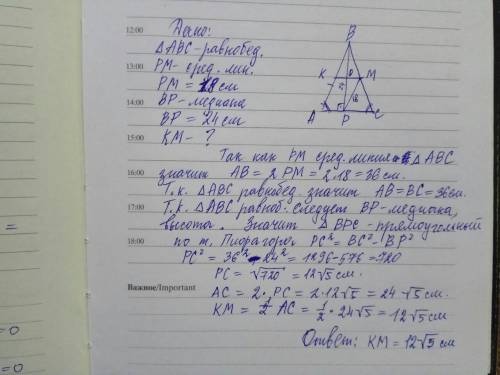 12:00
Дано:
△ABC-равнобед.
13:00
PM- сред. лин.
PM = 18 см
14:00
BP-медиана
BP = 24 см
15:00
KM- ?
B
K
M
A
P
C
18
Так как PM сред. линия △ABC
16:00
значит AB = 2 PM = 2·18 = 36 см.
Т.к. △ABC равнобед. значит AB=BC=36см.
17:00
Т.к. △ABC равноб. следует BP-медиана,
высота. Значит △BPC-прямоугольный
18:00
по т. Пифагора. PC² = BC² - BP²
PC² = 36² - 24² = 1296-576=720
PC = √720 = 12√5 см.
Важное/Important
AC = 2· PC = 2·12√5 = 24·√5 см.
KM = 1/2 AC = 1/2 · 24√5 = 12√5 см
Ответ: KM = 12√5 см
=
=0
=0